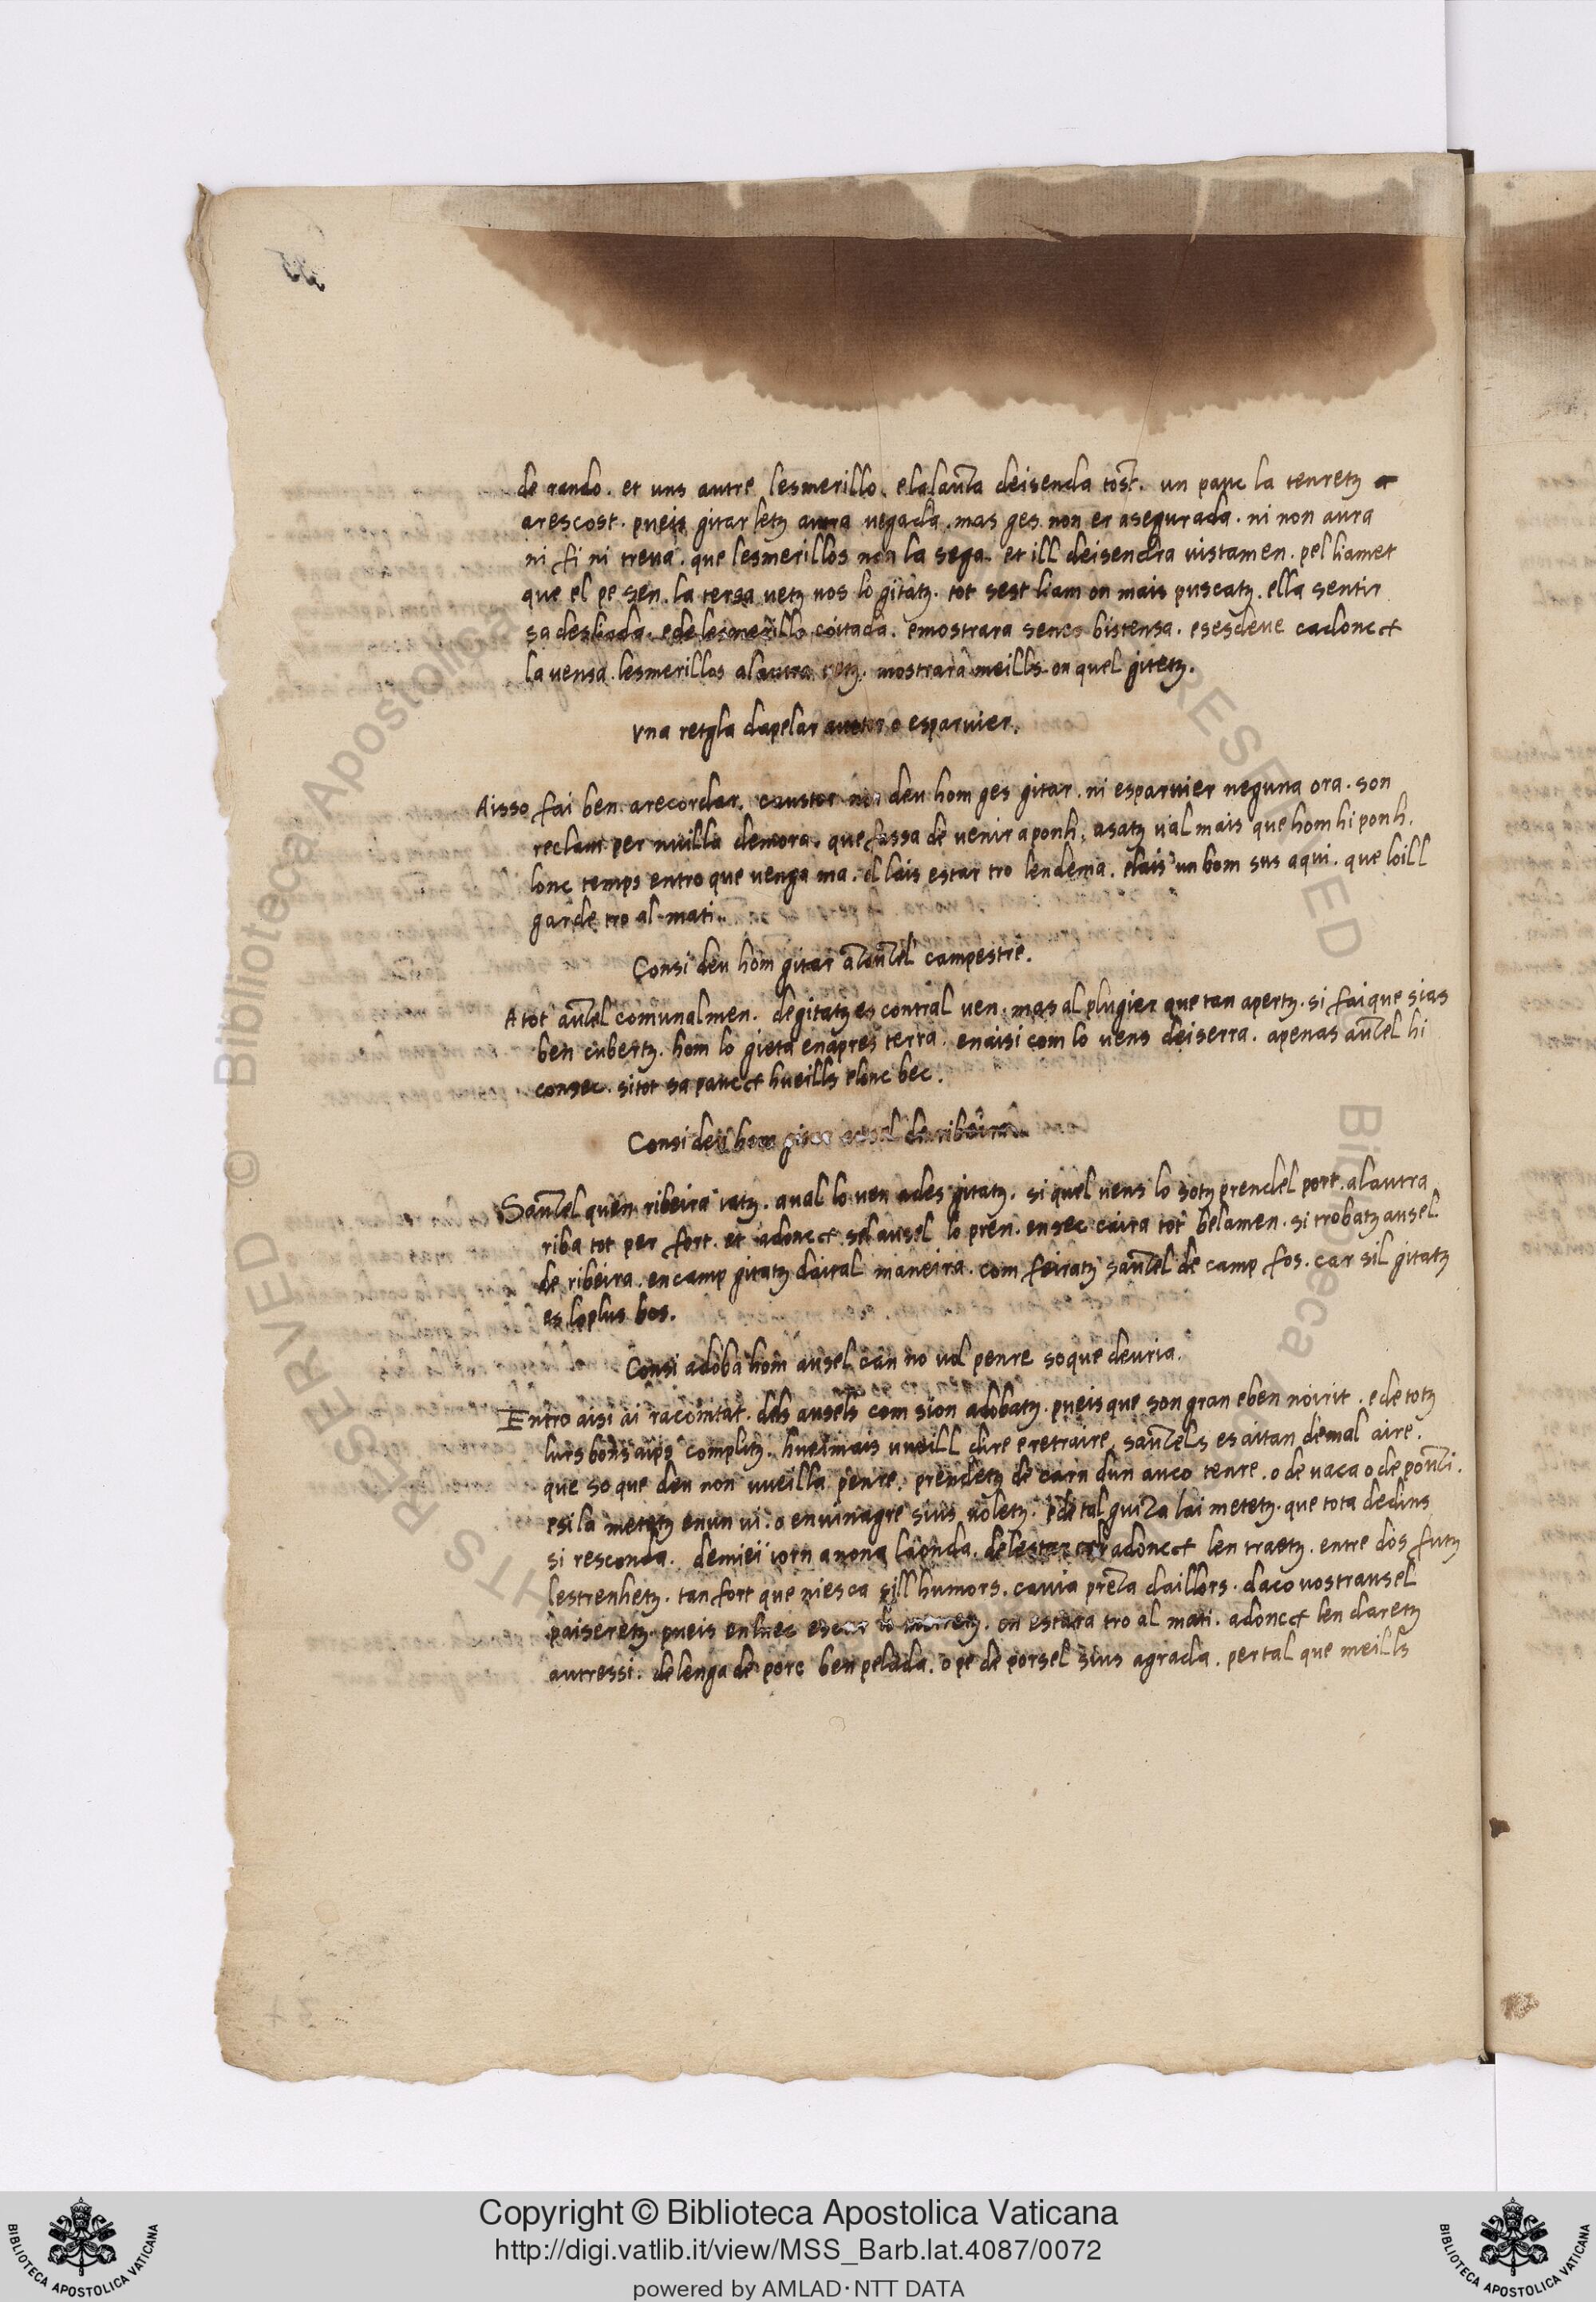 de rando. et uns autre lesmerillo. elalauza deisenda tost. un pauc la tenretz
arescost. pueis gitar letz autra uegada. mas ges non er asegurada. ni non aura
ni fi ni treua. que lesmerillos non la sega. et ill deisendra uistamen. pel liamet
que el pe sen. la tersa uetz uos lo gitatz. tot sest liam on mais puscatz. ella sentir
sa desliada. ede lesmerillo coitada. emostrara senes bistensa. esesdeue cadonc
la uensa. lesmerillos alautra uetz. mostrara meills on quel gitetz.
vna retgla dapelar austor o esparuier.
Aisso fai ben arecordar. caustor non deu hom ges gitar. ni esparuier neguna ora. son
reclam per nuilla demora. que fassa de uenir aponh. asatz ual mais que hom hi ponh.
lonc temps entro que uenga ma. el lais estar tro lendema. elais un bom sus aqui. que loill
garde tro al mati.
Consi deu hom gitar atauzel campestre.
A tot auzel comunalmen. degitatz es contral uen. mas al plugier que tan apertz. si fai que sias
ben cubertz. hom lo gieta enapres terra. enaisi com lo uens deiserra. apenas auzel hi
consec. sitot sa paucx hueills elonc bec.
Consi deu hom gitar auzel de ribeira.
Sauzel quen ribeira iatz. aual lo uen ades gitatz. si quel uens lo sotz prendel port. alautra
riba tot per fort. et adoncx sel ausel lo pren. ensec caira tot belamen. si trobatz ausel
de ribeira. encamp gitatz daital maneira. com feiratz sauzel de camp fos. car sil gitatz
es loplus bos.
Consi adoba hom ausel can no uol penre soque deuria.
Entro aisi ai racomtat. dels ausels com sion adobatz. pueis que son gran eben noirit. e de totz
lurs bons aips complitz. hueimais uueill dire e retraire. sauzels es aitan demal aire.
que so que deu non uueilla penre. prendetz de carn dun auco tenre. o de uaca o de pouzi.
esila metetz enun ui. o enuinagre sius uoletz. edetal guiza lai metetz. que tota dedins
si resconda. demiei iorn anona laonda. delestar adoncx len traetz. entre dos futz
lestrenhetz. tan fort que niesca sill humors. cauia preza daillors. daco uostrausel
paiseretz. pueis enluec escur lo metretz. on estara tro al mati. adoncx len daretz
autressi. delenga de porc ben pelada. o pe de porsel sius agrada. per tal que meills
Copyright © Biblioteca Apostolica Vaticana
http://digi.vatlib.it/view/MSS_Barb.lat.4087/0072
powered by AMLAD·NTT DATA